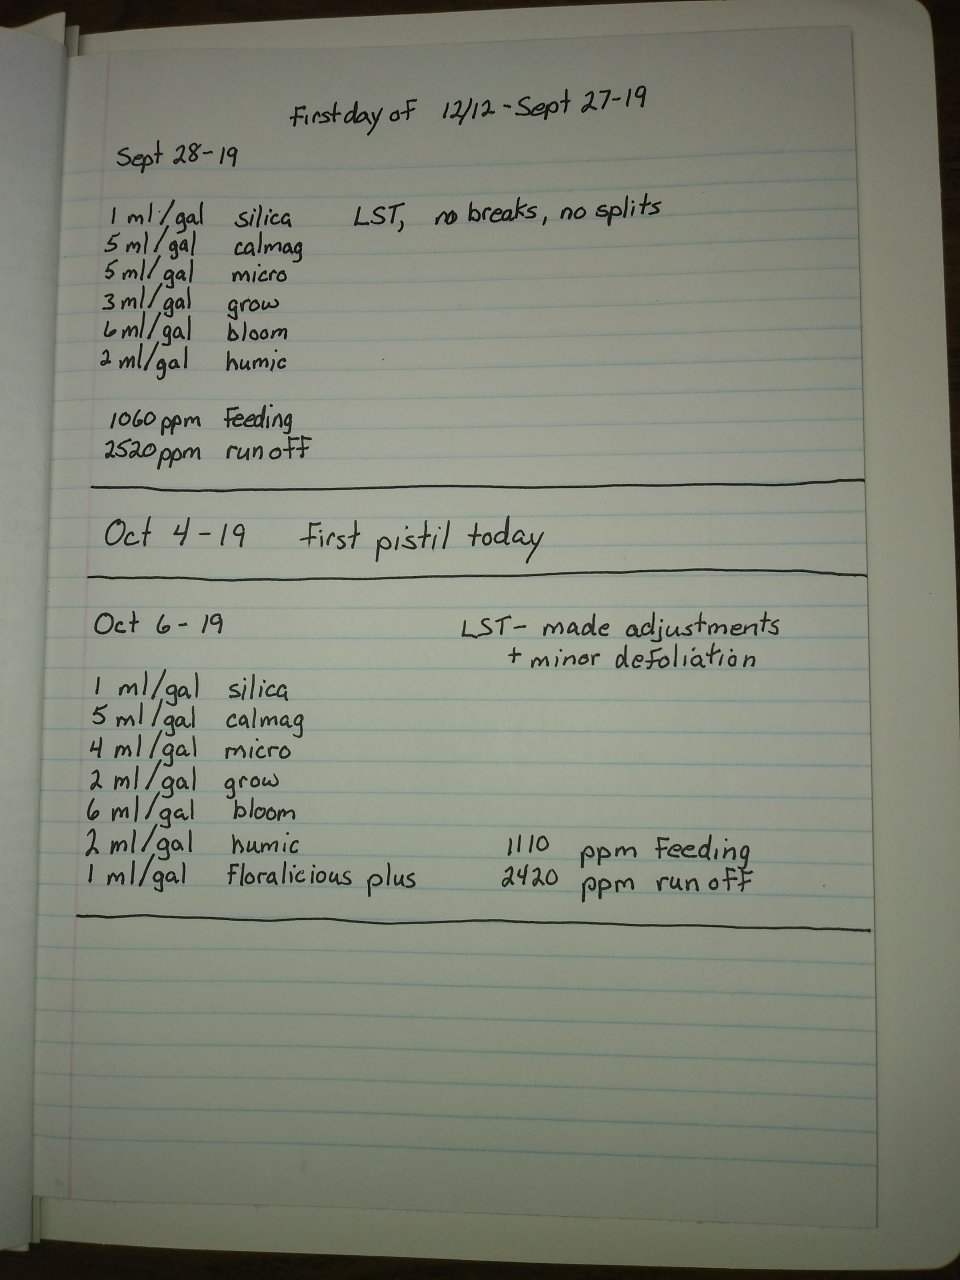 First day of 12/12 - Sept 27-19
Sept 28-19
1 ml/gal silica LST, no breaks, no splits
5 ml/gal calmag
5 ml/gal micro
3 ml/gal grow
6 ml/gal bloom
2 ml/gal humic
1060 ppm feeding
2520 ppm run off
Oct 4-19 First pistil today
Oct 6-19 LST- made adjustments
+ minor defoliation
1 ml/gal silica
5 ml/gal calmag
4 ml/gal micro
2 ml/gal grow
6 ml/gal bloom
2 ml/gal humic 1110 ppm feeding
1 ml/gal floralicious plus 2420 ppm run off